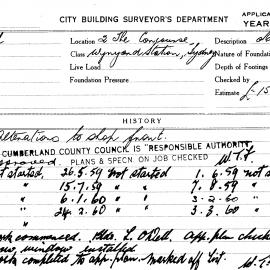 CITY BUILDING SURVEYOR'S DEPARTMENT
APPLICA
YEAR
Location 2 The Concourse
Class Wynyard Station, Sydney
Live Load
Foundation Pressure
Description
Nature of Foundation
Depth of Footings
Checked by
Estimate £ 15
HISTORY
Alterations to shop front.
CUMBERLAND COUNTY COUNCIL IS "RESPONSIBLE AUTHORITY
approved. PLANS & SPECN. ON JOB CHECKED W.T.F.
not started 26.5.59 Not started 1.6.59 not s
" 15.7.59 " " 7.8.59 "
" 6.1.60 " " 3.2.60 "
" 24.2.60 " " 3.3.60 "
work commenced. app. plan check
new window installed
work completed to app. plan. Marked off list.
W.T.